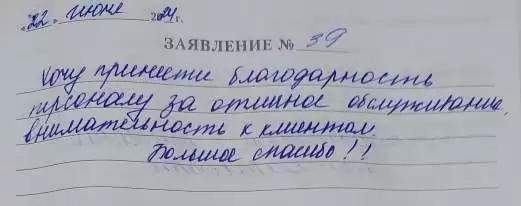 «22» июне 2024г.
ЗАЯВЛЕНИЕ № 39
Хочу принести благодарность
персоналу за отличное обслуживание,
внимательность к клиентам.
Большое спасибо!!